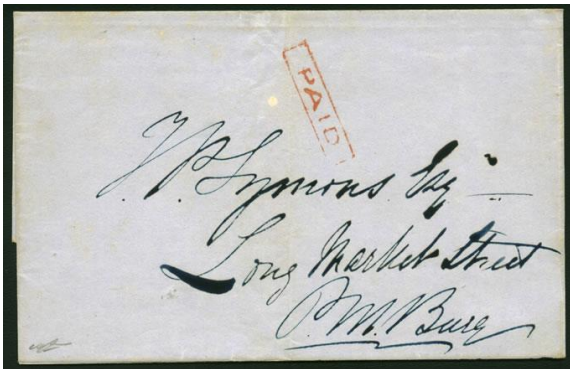 PAID
J. P. Symons Esqr
Long Market Street
P. M. Burg